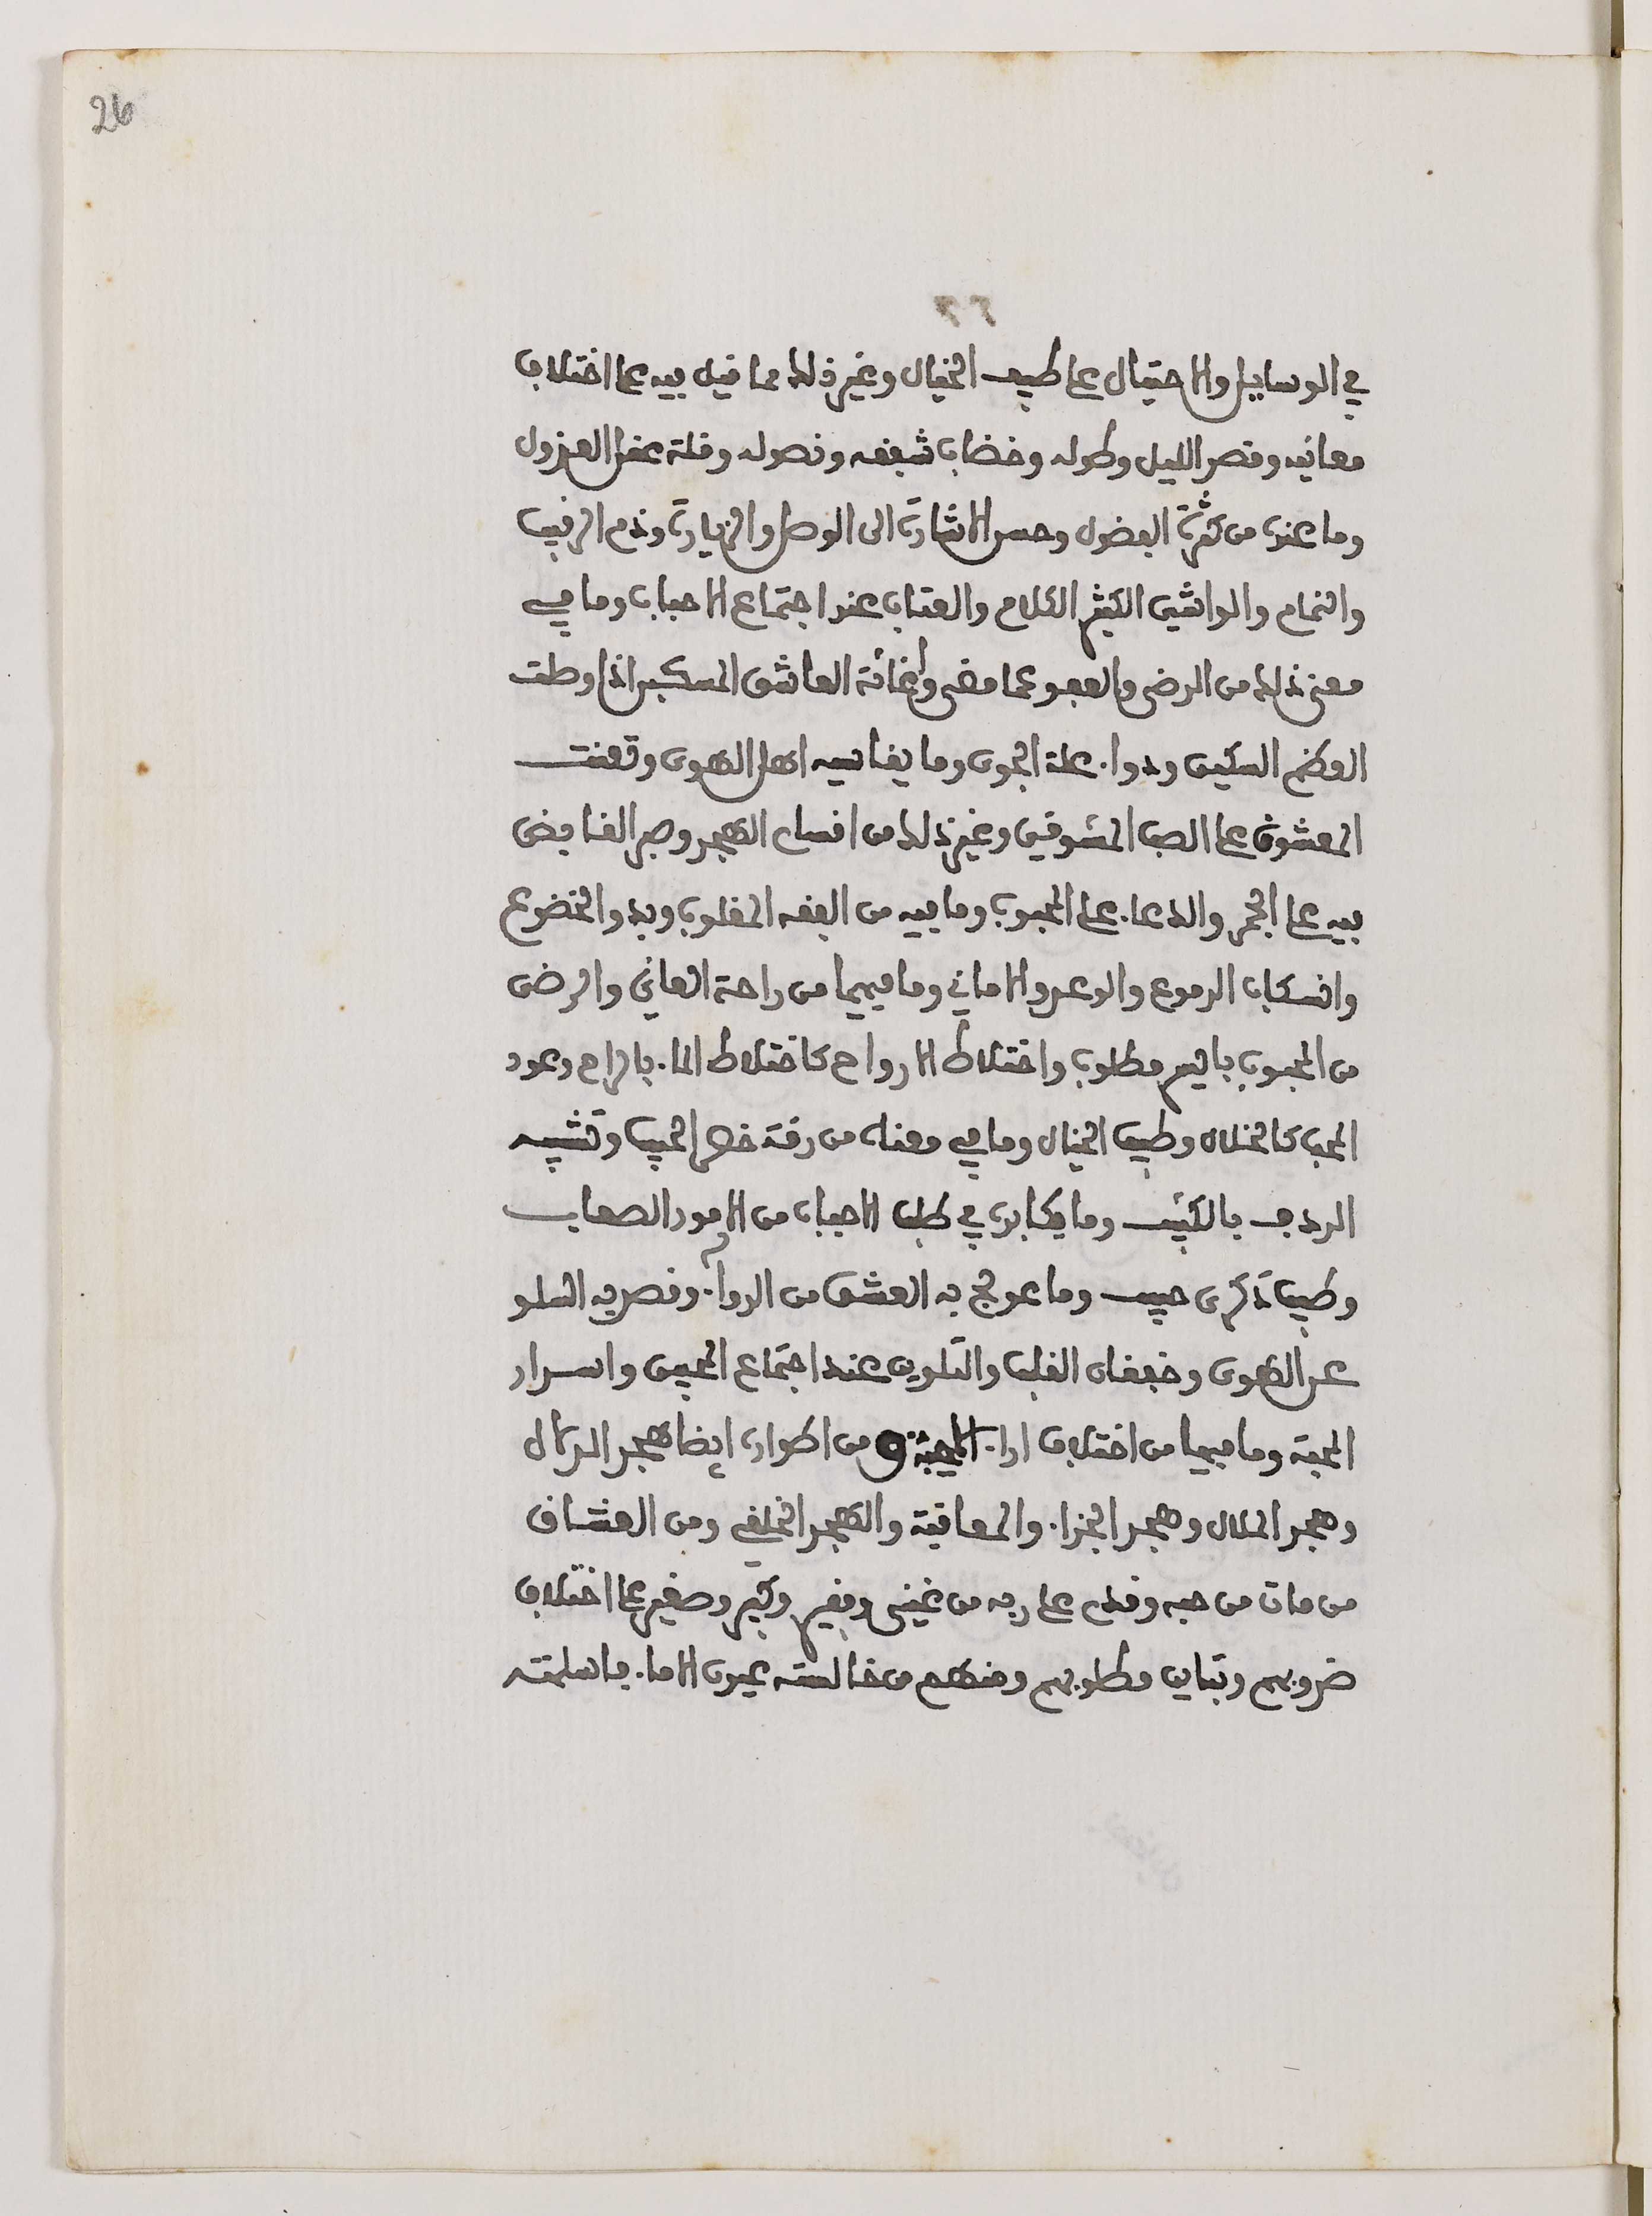 26
٢٦
في الوسايل والاحتيال على طيف الخيال وغير ذلك مما قيل فيه على اختلاف
معانيه وقصر الليل وطوله وخضاب شفقه ونصوله وقلة عقل العذول
وما عنده من كثرة الفضول وحسن الاشارة الى الوصل والزيارة وذم الرقيب
والنمام والواشي الكثير الكلام والعتاب عند اجتماع الاحباب وما في
معنى ذلك من الرضى والعفو عما مضى وإغاثة العاشق المسكين اذا وصلت
العظم السكين ودوا علة الجوى وما يقاسيه اهل الهوى وتعنت
المعشوق على الصب المشوق وغير ذلك من اقسام الهجر وصبر القابض
فيه على الجمر والدعاء على المحبوب وما فيه من الفقه المقلوب وبدو الخضوع
وانسكاب الدموع والوعد والاماني وما فيهما من راحة العاني والرضى
من المحبوب باليسر مطلوب واختلاط الارواح كاختلاط الماء بالراح وعود
المحب كالخلال وطيف الخيال وما في معناه من رقة خصر الحبيب وتشبيه
الردف بالكثيب وما يكابده في طلب الاحباب من الامور الصعاب
وطيب ذكرى حبيب وما عولج به العشق من الدواء وقصد به السلو
عن الهوى وخفقان القلب والتلوين عند اجتماع المحبين واسرار
المحبة وما فيها من اختلاف اراء الاحبة و من اطواره ايضا هجر الدلال
وهجر الملال وهجر الجزاء والمعاقبة والهجر الخلقي ومن العشاق
من مات من حبه وقدم على ربه من غني وفقير وكبير وصغير على اختلاف
ضروبهم وتباين مطلوبهم ومنهم من خالسته عيون الاماء فاسلمته